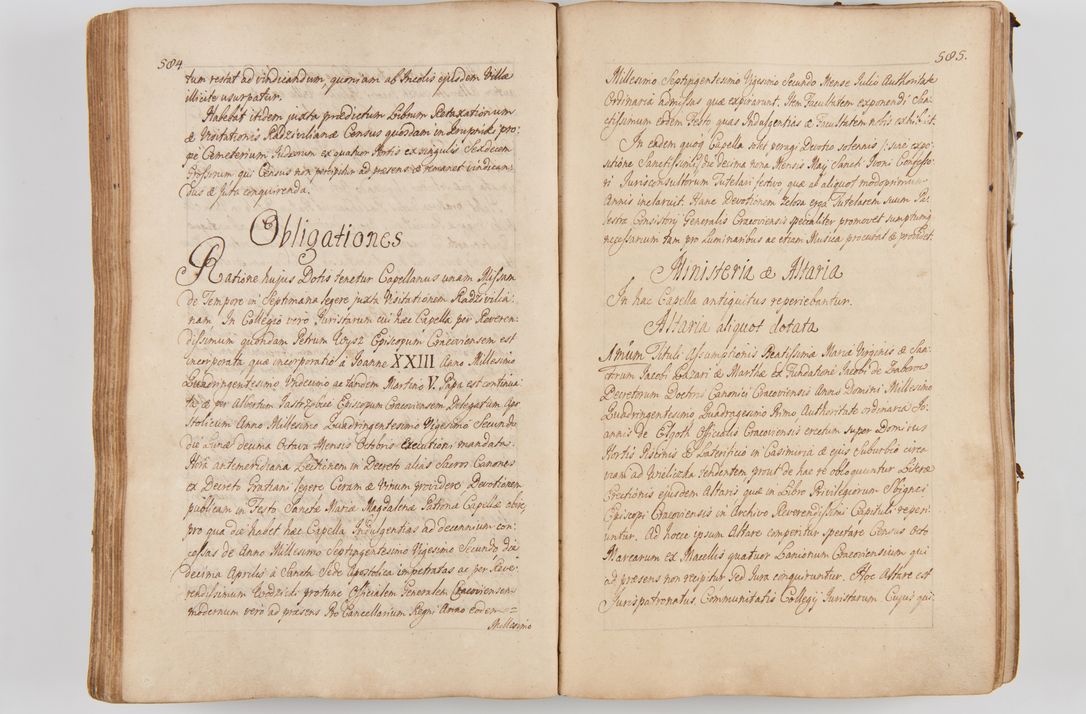 584
tum restat ad vindicandum, quoniam ab Incolis ejusdem Villæ
illicite usurpatur.
Habebat itidem juxta prædictum Librum Retaxationum
& Visitationis Radzivilianæ Census quosdam in pro-
pe Cæmeterium Iudæorum ex quatuor Hortis ex singulis Sexdecem
Grossorum qui Census non percipitur ad præsens & remanet vindican-
dus & Jura conquirenda.
Obligationes
Ratione hujus Dotis tenetur Capellanus unam Missam
de Tempore in Septimana legere juxta Visitationem Radzivilia-
nam. In Collegio verò Iuristarum cui hæc Capella per Reveren-
dissimum quondam Petrum Wysz Episcopum Cracoviensem est
incorporata quæ incorporatio à Ioanne XXIII Anno Millesimo
Quadringentesimo Undecimo ac tandem Martino V. Papa est continua-
ta, & per Albertum Jastrzębiec Episcopum Cracoviensem Delegatum Apo-
stolicum Anno Millesimo Quadringentesimo Vigesimo Secundo
die Lunæ decima Octava Mensis Octobris executioni mandata.
Hora antemeridiana Lectionem in Decreto alias Sacros Canones
ex Decreto Gratiani legere Ceram & Vinum providere Devotionem
publicam in Festo Sanctæ Mariæ Magdalenæ Patronæ Capellæ obire,
pro qua die habet hæc Capella Indulgentias ad decennium con-
cessas de Anno Millesimo Septingentesimo Vigesimo Secundo die
decima Aprilis à Sancta Sede Apostolica impetratas ac per Reve-
rendissimum protunc Officialem Generalem Cracoviensem
modernum verò ad præsens Pro Cancellarium Regni Anno eodem =
Millesimo
585.
Millesimo Septingentesimo Vigesimo Secundo Mense Iulio Authoritate
Ordinaria admissas quæ expirarunt. Item Facultatem exponendi
eodem Festo quas Indulgentias & Facultatem nobis exhibuit.
In eadem quoque Capella solet peragi Devotio solennis sine expo-
sitione Sanctissimi, die decima nona Mensis Maji Sancti Ivoni Confesso-
ri Jurisconsultorum Tutelari festivo, quæ ab aliquot modo primum
Annis inclaruit. Hanc Devotionem Zelosa erga Tutelarem suum Pa-
lestra Consistorij Generalis Cracoviensis specialiter promovet sumptumque
necessarium tam pro Luminaribus ac etiam Musica procurat & providet.
Ministeria & Altaria
In hac Capella antiquitus reperiebantur.
Altaria aliquot dotata
Tituli Assumptionis Beatissimæ Mariæ Virginis & San-
ctorum Jacobi Lazari & Marthæ ex Fundatione Jacobi de Zaborow
Decretorum Doctoris Canonici Cracoviensis Anno Domini Millesimo
Quadringentesimo Quadragesimo Primo Authoritate ordinaria Jo-
annis de Elgoth Officialis Cracoviensis erectum super Domibus
Hortis Piscinis & Laterificio in Casimiria & ejus Suburbio circa
viam ad Wieliczka tendentem prout de hac rè obloquuntur Literæ
Erectionis ejusdem Altaris quæ in Libro Privilegiorum Sbignei
Episcopi Cracoviensis in Archivo Reverendissimi Capituli reperi-
untur. Ad hocce ipsum Altare comperitur spectare Census Octo
Marcarum ex Macellis quatuor Lanionum Cracoviensium qui
ad præsens non recipitur sed Jura conquiruntur. Hoc Altare est
Jurispatronatus Communitatis Collegij Juristarum Cujus qui-